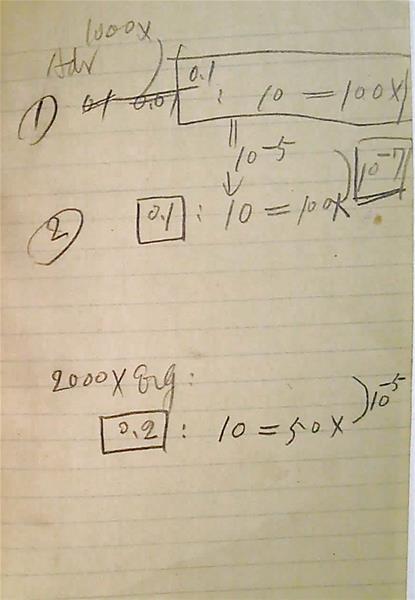 1000x
Adr
① 0.1 : 10 = 100X
10-5
② 0.1 : 10 = 100X 10-7
2000X Erg :
0.2 : 10 = 50X 10-5